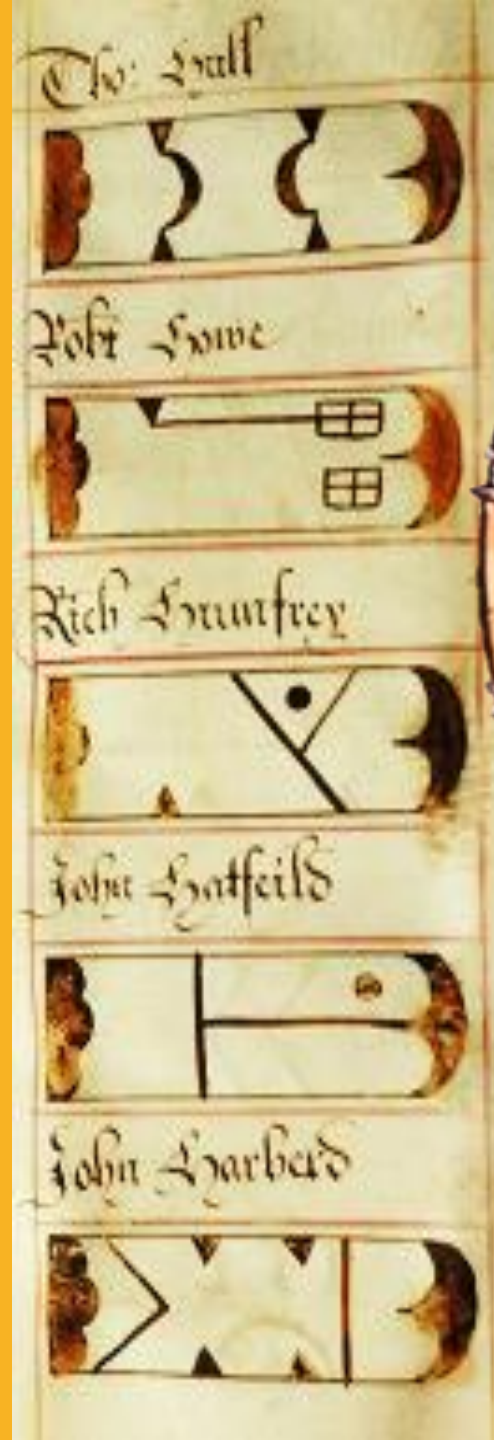 Tho: Hall
Robt Howe
Rich Humfrey
John Hatfeild
John Harberd